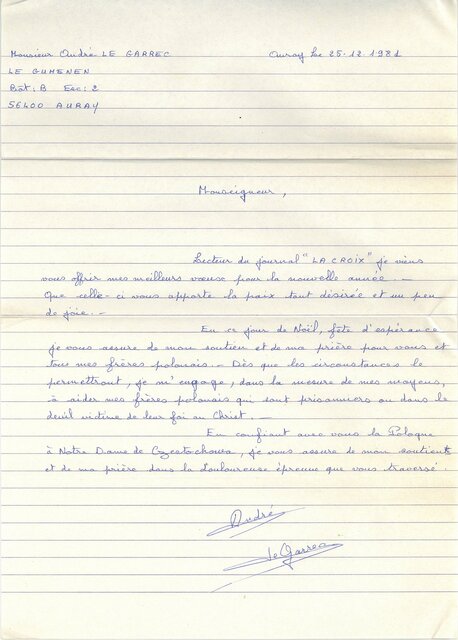 Monsieur André LE GARREC
Auray le 25.12.1981
LE GUMENEN
Bât: B Esc: 2
56400 AURAY
Monseigneur,
Lecteur du journal "LA CROIX" je viens
vous offrir mes meilleurs voeux pour la nouvelle année. -
Que celle-ci vous apporte la paix tant désirée et un peu
de joie. -
En ce jour de Noël, fête d'espérance
je vous assure de mon soutien et de ma prière pour vous et
tous mes frères polonais. - Dès que les circonstances le
permettront, je m'engage, dans la mesure de mes moyens,
à aider mes frères polonais qui sont prisonniers ou dans le
deuil victime de leur foi au Christ. -
En confiant avec vous la Pologne
à Notre Dame de Czestochowa, je vous assure de mon soutient
et de ma prière dans la douloureuse épreuve que vous traversé
André
Le Garrec